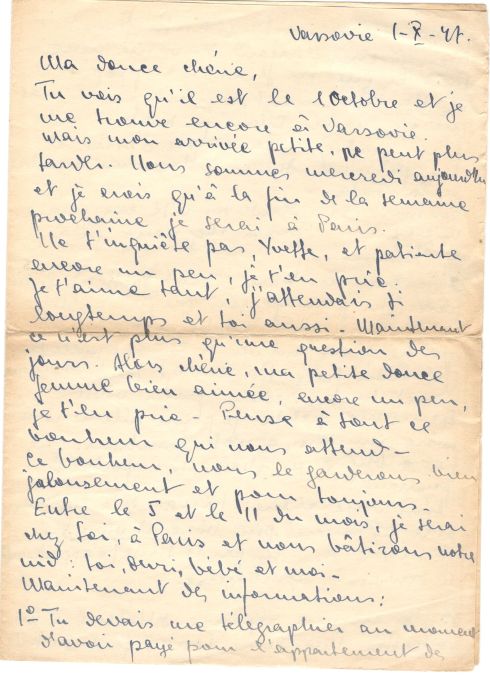 Varsovie 1-X-47.
Ma douce chérie,
Tu vois qu'il est le 1 Octobre et je
me trouve encore à Varsovie.
Mais mon arrivée petite, ne peut plus
tarder. Nous sommes mercredi aujourd'hui
et je crois qu'à la fin de la semaine
prochaine je serai à Paris.
Ne t'inquiète pas, Yvette, et patiente
encore un peu, je t'en prie.
Je t'aime tant, j'attendais si
longtemps et toi aussi - Maintenant
ce n'est plus qu'une question des
jours. Alors chérie, ma petite douce
femme bien aimée, encore un peu,
je t'en prie - Pense à tout ce
bonheur qui nous attend -
Ce bonheur, nous le garderons bien
jalousement et pour toujours.
Entre le 5 et le 11 du mois, je serai
chez toi, à Paris et nous bâtirons notre
nid: toi, bébé et moi -
Maintenant des informations:
1º- Tu devais me télégraphier au moment
d'avoir payé pour l'appartement de